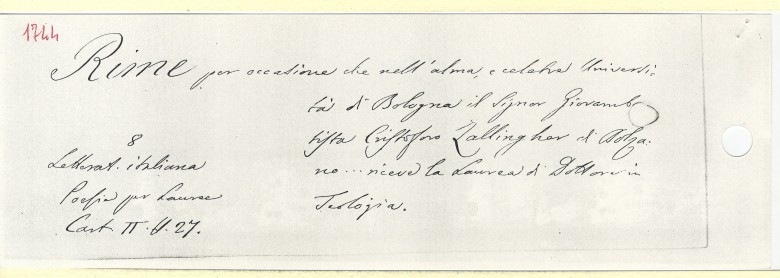 1744
Rime per occasione che nell'alma, e celebre Universi-
tà di Bologna il Signor Giovamb
tista Cristoforo Zallingher di Bolza-
no... riceve la Laurea di Dottore in
Teologia.
8
Letterat. italiana
Poesia per Lauree
Cart. II. N. 27.